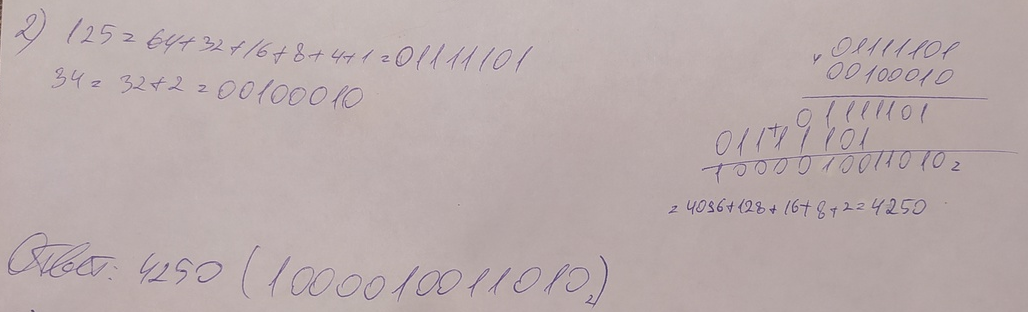 2) 125 = 64 + 32 + 16 + 8 + 4 + 1 = 01111101
34 = 32 + 2 = 00100010
× 01111101
00100010
01111101
+
01111101
1000010011010₂
= 4096 + 128 + 16 + 8 + 2 = 4250
Ответ: 4250 (1000010011010₂)